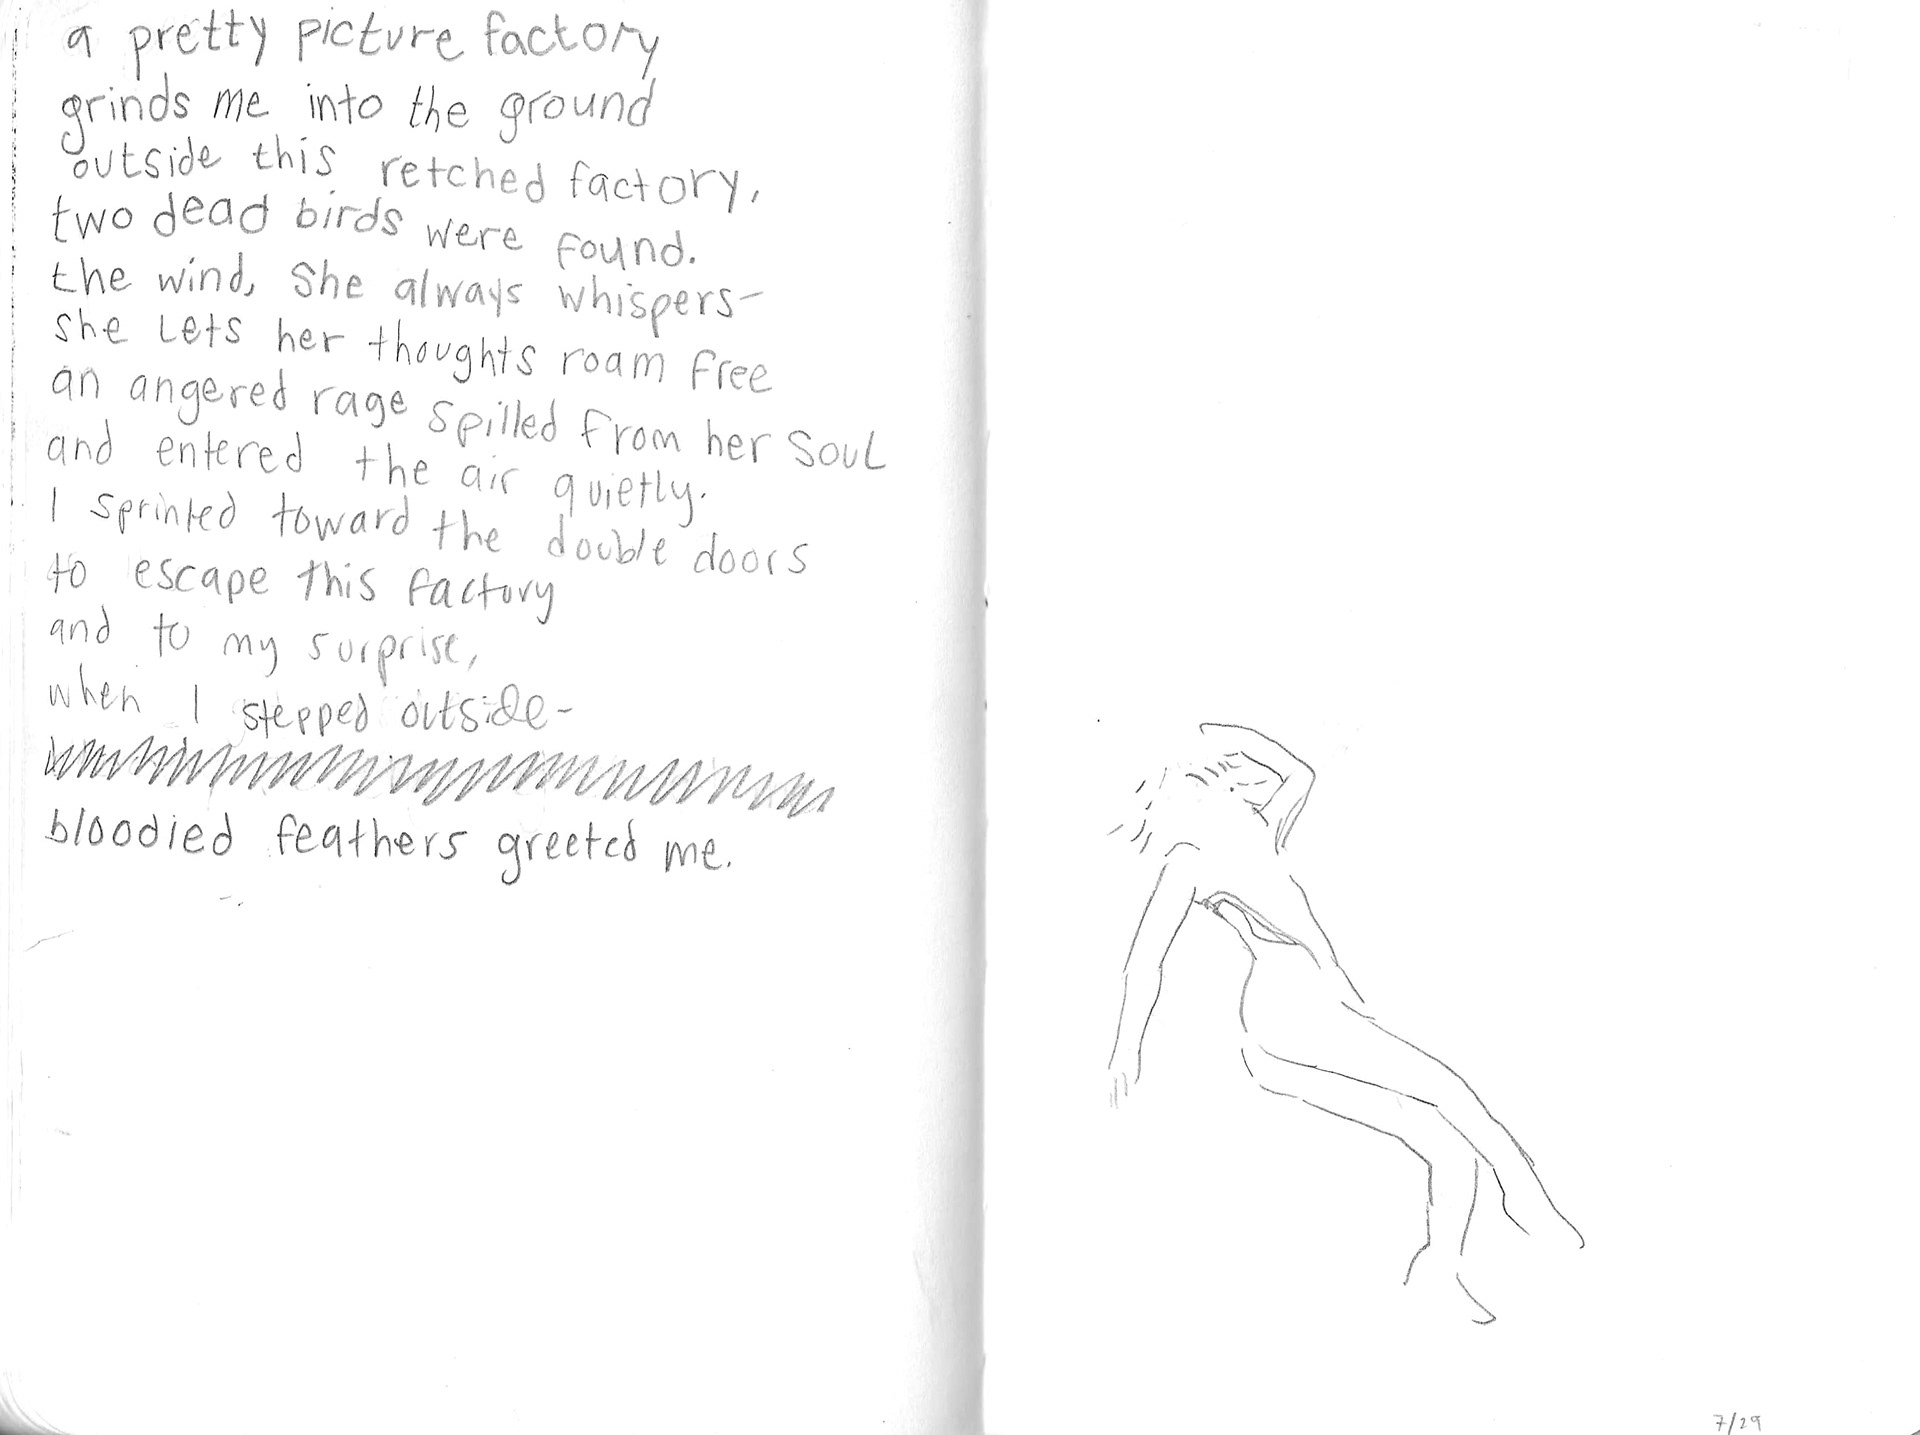 a pretty picture factory
grinds me into the ground
outside this retched factory,
two dead birds were found.
the wind, she always whispers-
she lets her thoughts roam free
an angered rage spilled from her soul
and entered the air quietly.
I sprinted toward the double doors
to escape this factory
and to my surprise,
when I stepped outside-
bloodied feathers greeted me.
7/29